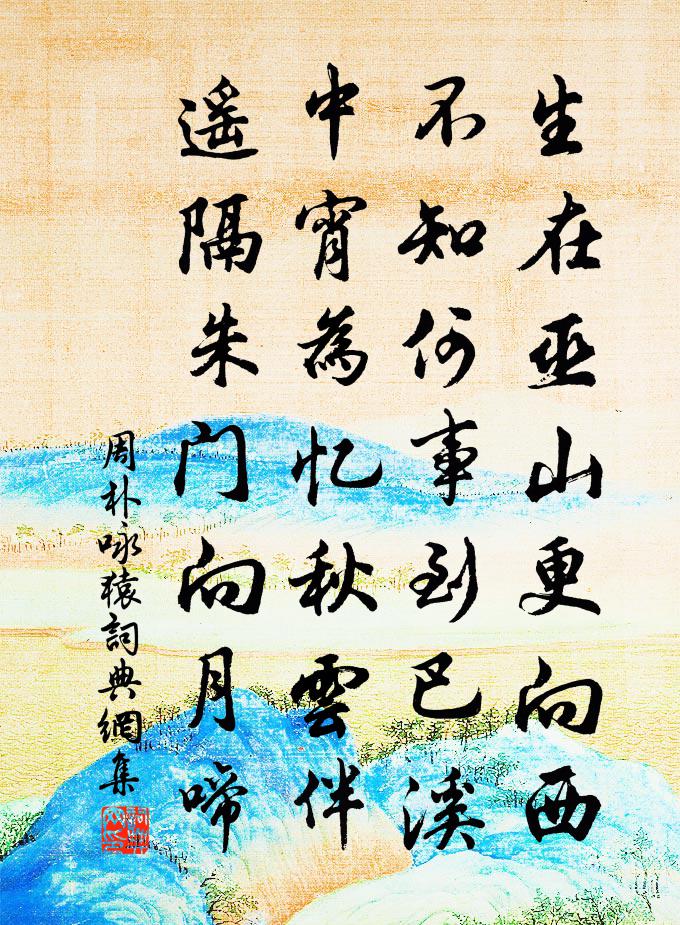 生在巫山更向西
不知何事到巴溪
中宵為忆秋雲伴
遥隔朱门向月啼
周朴咏猿詞典網集